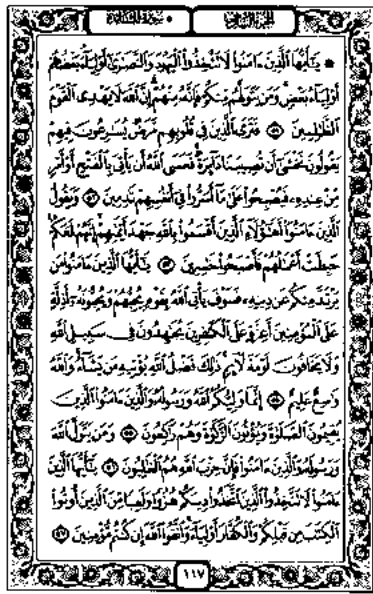 الجزء السادس سورة المائدة
۞ يَٰٓأَيُّهَا ٱلَّذِينَ ءَامَنُوا۟ لَا تَتَّخِذُوا۟ ٱلْيَهُودَ وَٱلنَّصَٰرَىٰٓ أَوْلِيَآءَ بَعْضُهُمْ
أَوْلِيَآءُ بَعْضٍ وَمَن يَتَوَلَّهُم مِّنكُمْ فَإِنَّهُۥ مِنْهُمْ إِنَّ ٱللَّهَ لَا يَهْدِى ٱلْقَوْمَ
ٱلظَّٰلِمِينَ ۝٥١ فَتَرَى ٱلَّذِينَ فِى قُلُوبِهِم مَّرَضٌ يُسَٰرِعُونَ فِيهِمْ
يَقُولُونَ نَخْشَىٰٓ أَن تُصِيبَنَا دَآئِرَةٌ فَعَسَى ٱللَّهُ أَن يَأْتِىَ بِٱلْفَتْحِ أَوْ أَمْرٍ
مِّنْ عِندِهِۦ فَيُصْبِحُوا۟ عَلَىٰ مَآ أَسَرُّوا۟ فِىٓ أَنفُسِهِمْ نَٰدِمِينَ ۝٥٢ وَيَقُولُ
ٱلَّذِينَ ءَامَنُوٓا۟ أَهَٰٓؤُلَآءِ ٱلَّذِينَ أَقْسَمُوا۟ بِٱللَّهِ جَهْدَ أَيْمَٰنِهِمْ إِنَّهُمْ لَمَعَكُمْ
حَبِطَتْ أَعْمَٰلُهُمْ فَأَصْبَحُوا۟ خَٰسِرِينَ ۝٥٣ يَٰٓأَيُّهَا ٱلَّذِينَ ءَامَنُوا۟ مَن
يَرْتَدَّ مِنكُمْ عَن دِينِهِۦ فَسَوْفَ يَأْتِى ٱللَّهُ بِقَوْمٍ يُحِبُّهُمْ وَيُحِبُّونَهُۥٓ أَذِلَّةٍ
عَلَى ٱلْمُؤْمِنِينَ أَعِزَّةٍ عَلَى ٱلْكَٰفِرِينَ يُجَٰهِدُونَ فِى سَبِيلِ ٱللَّهِ
وَلَا يَخَافُونَ لَوْمَةَ لَآئِمٍ ذَٰلِكَ فَضْلُ ٱللَّهِ يُؤْتِيهِ مَن يَشَآءُ وَٱللَّهُ
وَٰسِعٌ عَلِيمٌ ۝٥٤ إِنَّمَا وَلِيُّكُمُ ٱللَّهُ وَرَسُولُهُۥ وَٱلَّذِينَ ءَامَنُوا۟ ٱلَّذِينَ
يُقِيمُونَ ٱلصَّلَوٰةَ وَيُؤْتُونَ ٱلزَّكَوٰةَ وَهُمْ رَٰكِعُونَ ۝٥٥ وَمَن يَتَوَلَّ ٱللَّهَ
وَرَسُولَهُۥ وَٱلَّذِينَ ءَامَنُوا۟ فَإِنَّ حِزْبَ ٱللَّهِ هُمُ ٱلْغَٰلِبُونَ ۝٥٦ يَٰٓأَيُّهَا ٱلَّذِينَ
ءَامَنُوا۟ لَا تَتَّخِذُوا۟ ٱلَّذِينَ ٱتَّخَذُوا۟ دِينَكُمْ هُزُوًا وَلَعِبًا مِّنَ ٱلَّذِينَ أُوتُوا۟
ٱلْكِتَٰبَ مِن قَبْلِكُمْ وَٱلْكُفَّارَ أَوْلِيَآءَ وَٱتَّقُوا۟ ٱللَّهَ إِن كُنتُم مُّؤْمِنِينَ ۝٥٧
١١٧